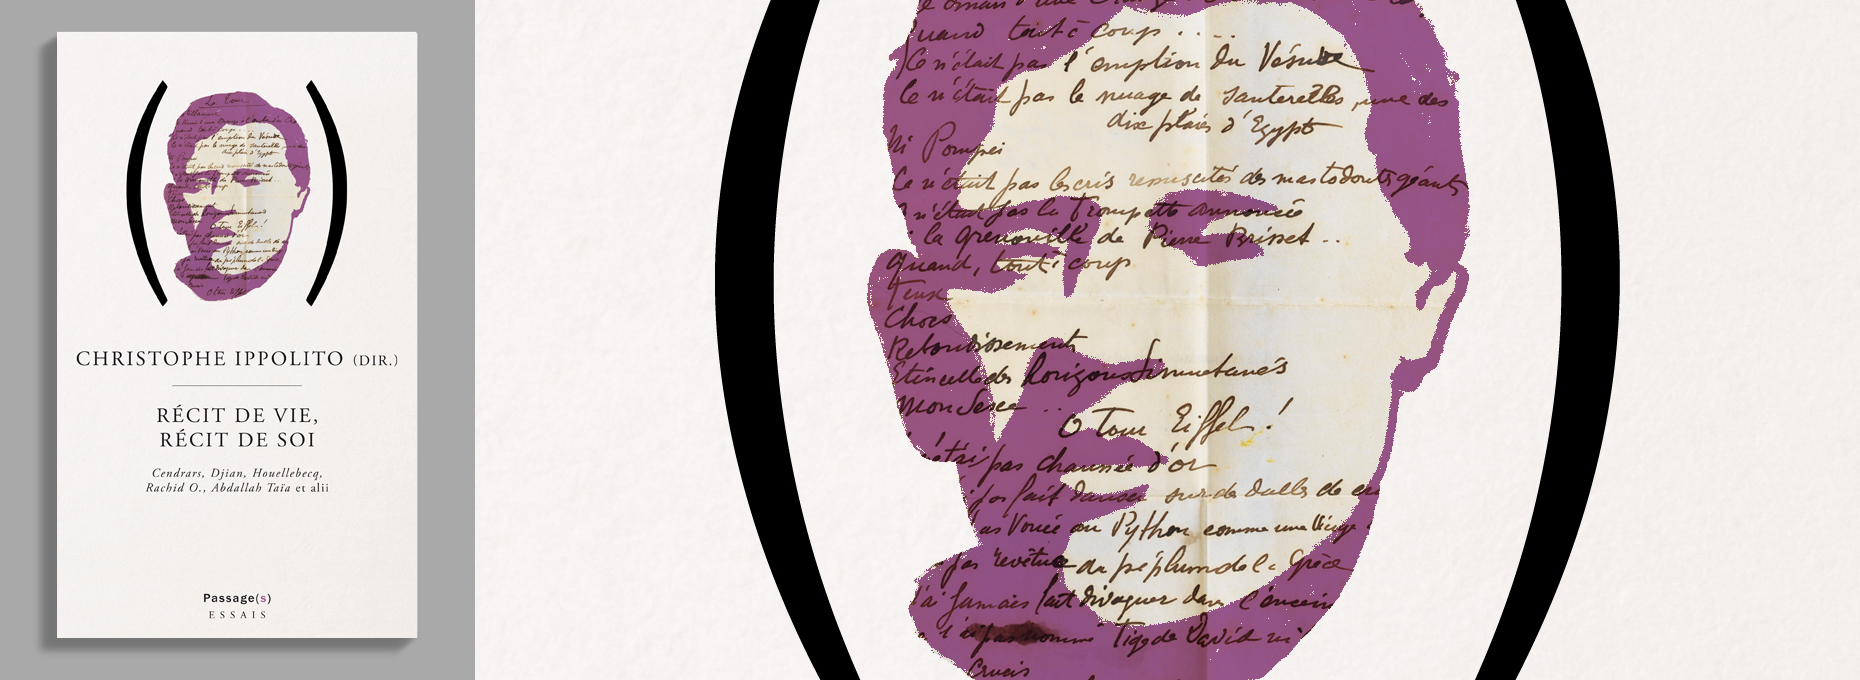 CHRISTOPHE IPPOLITO (DIR.)
RÉCIT DE VIE,
RÉCIT DE SOI
Cendrars, Djian, Houellebecq,
Rachid O., Abdallah Taïa et alii
Passage(s)
ESSAIS
quand tout à coup ....
Ce n'était pas l'éruption du Vésuve
Ce n'était pas le nuage de sauterelles, une des
dix plaies d'Egypt
Ni Pompei
Ce n'était pas les cris ressuscités des mastodontes géants
n'était pas la trompette annoncée
la grenouille de Pierre Brisset ..
quand, tout à coup
Feux
Chocs
Rebondissements
Etincelle des horizons simultanés
Mon sexe ..
O tour Eiffel!
pas chaussée d'or
pas fait danser sur de dalles de
as vouée au Python comme une Vierge
pas revêtue du péplum de la Grèce
jamais fait divaguer dans l'encein
pas nommé Tige de David ni
Crucis